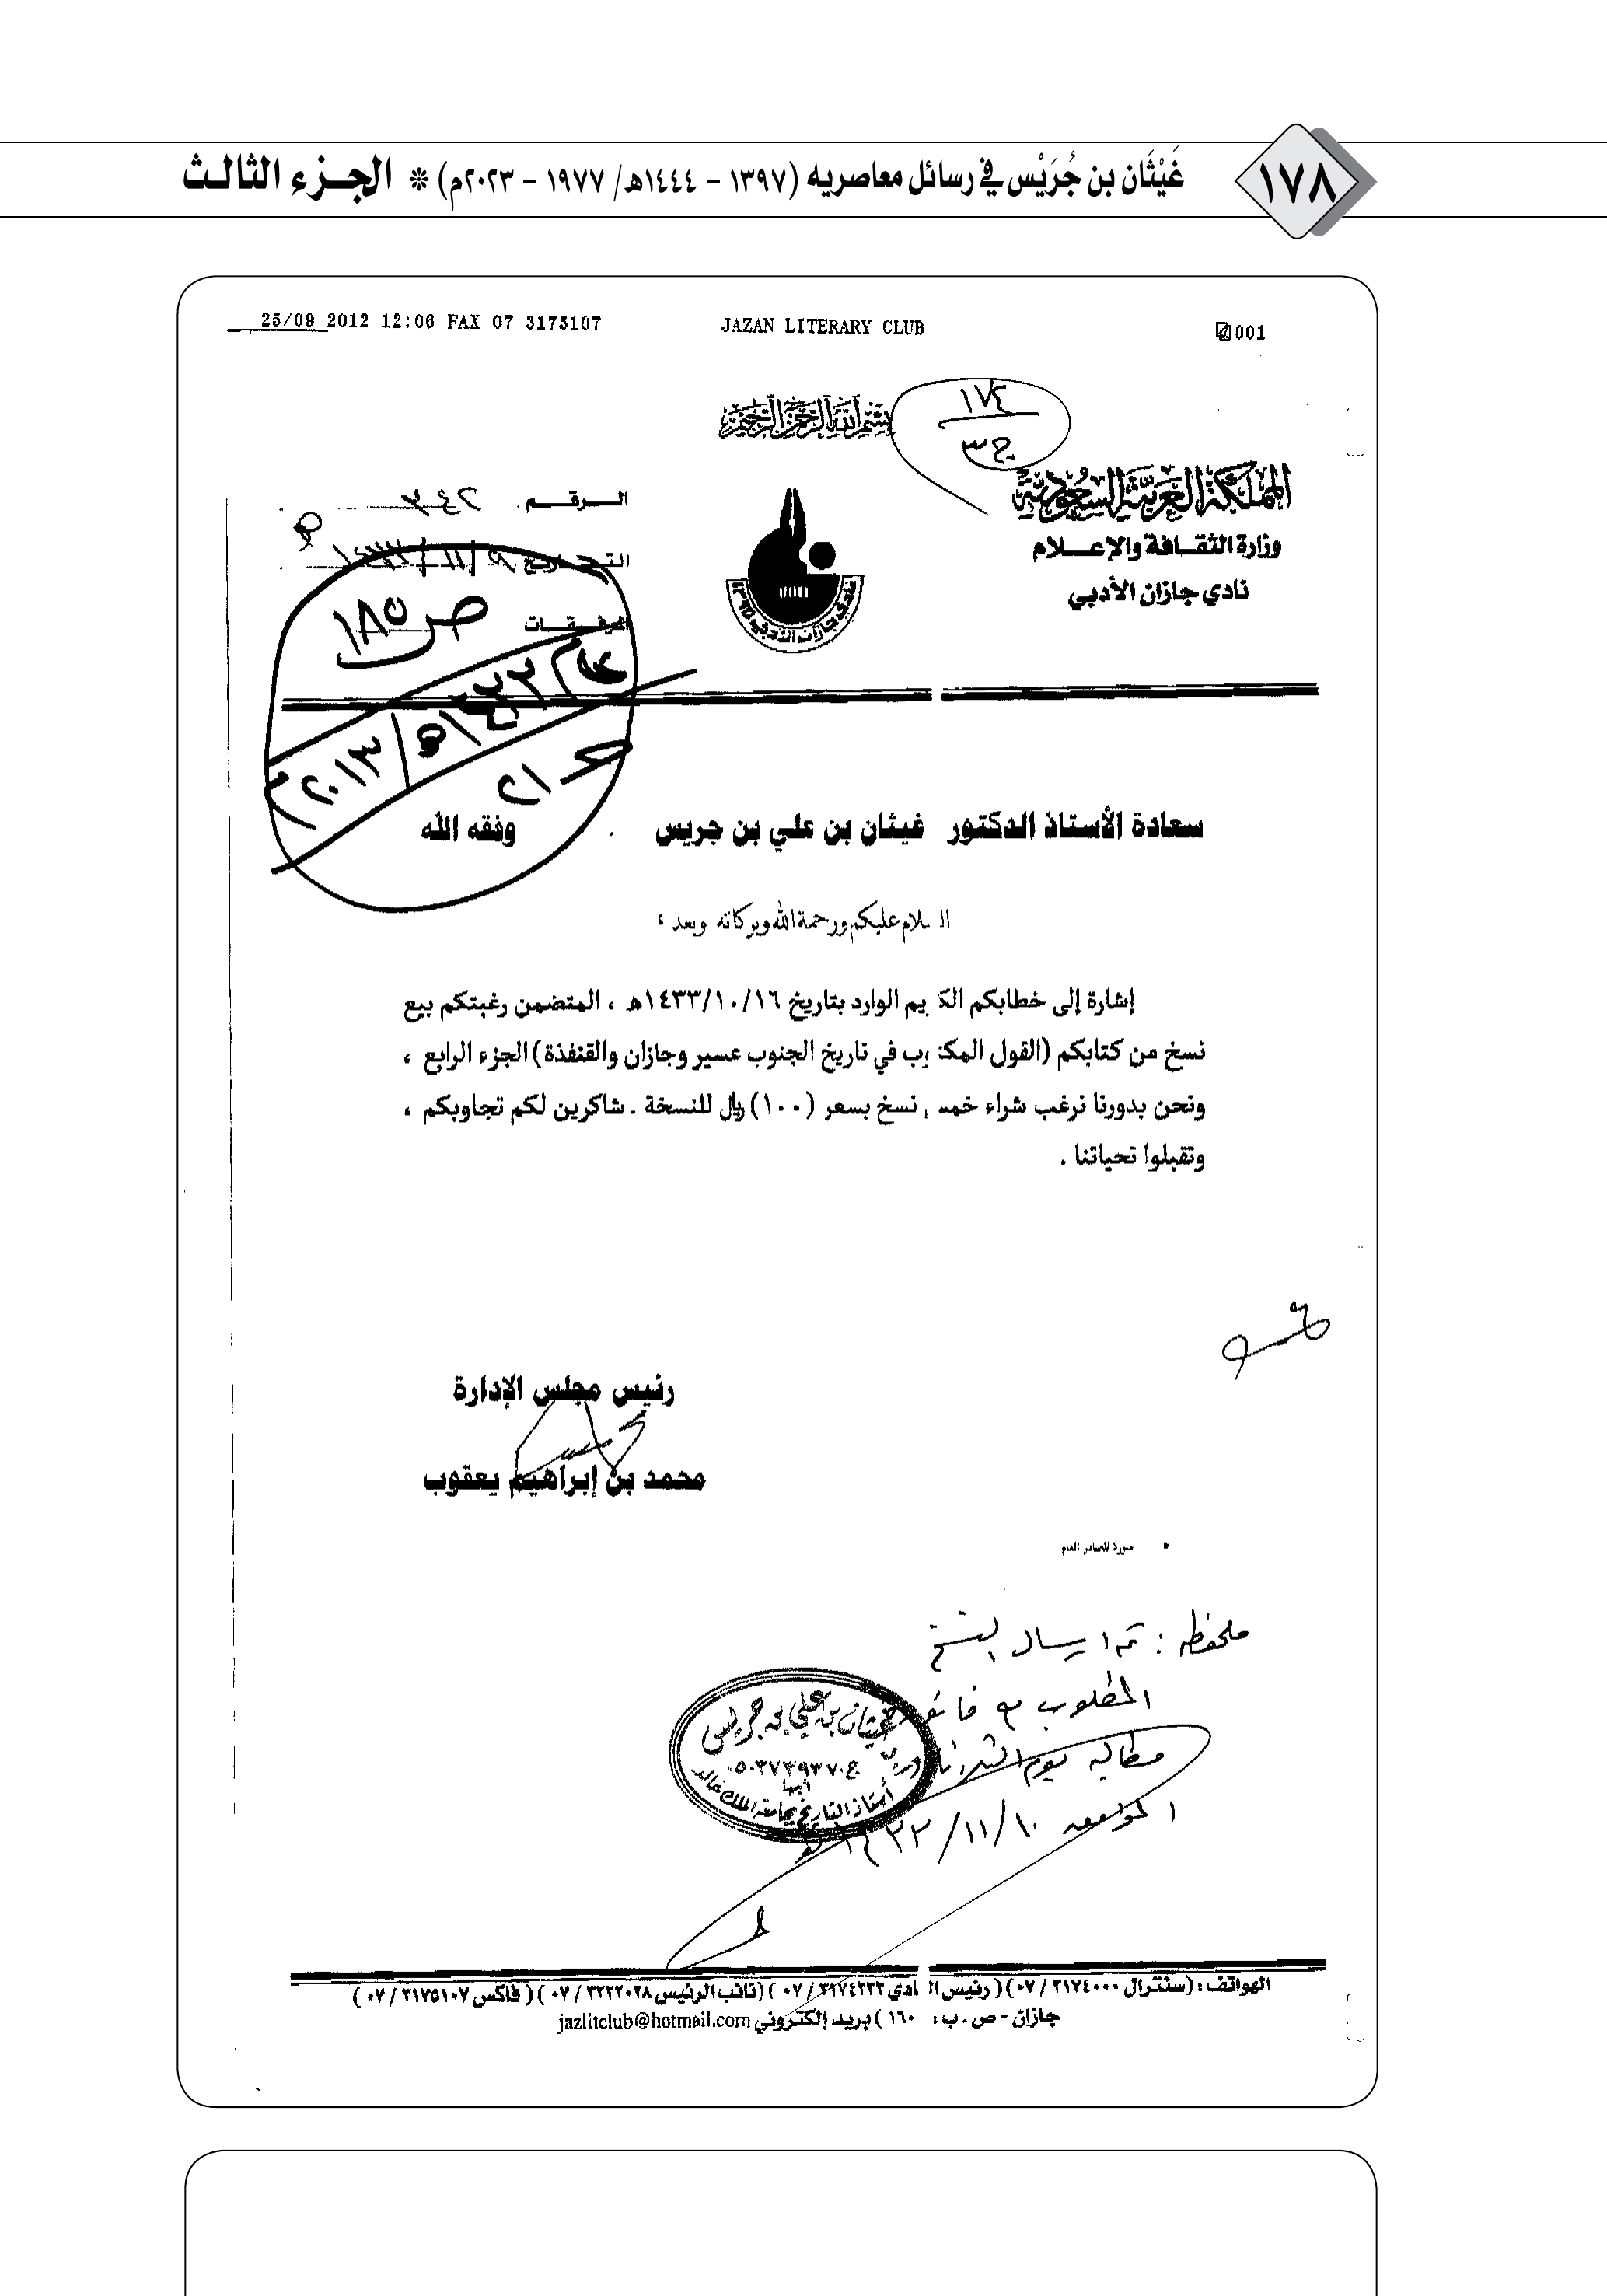 ١٧٨
غَيْثَان بن جُرَيْس في رسائل معاصريه (١٣٩٧ - ١٤٤٤هـ/ ١٩٧٧ - ٢٠٢٣م) * الجـزء الثالث
25/09 2012 12:06 FAX 07 3175107 JAZAN LITERARY CLUB 001
بسم الله الرحمن الرحيم
١٧٤
ج ٣
المملكة العربية السعودية
وزارة الثقـافة والإعـــلام
نادي جازان الأدبي
نادي جازان الأدبي ١٣٩٥
الــرقــم
التـــاريخ
المرفـــقـــات
ص ١٨٥
٢٠١٣م
سعادة الأستاذ الدكتور غيثان بن علي بن جريس وفقه الله
السلام عليكم ورحمة الله وبركاته وبعد ،
إشارة إلى خطابكم الكريم الوارد بتاريخ ١٤٣٣/١٠/١٦هـ ، المتضمن رغبتكم بيع
نسخ من كتابكم (القول المكتوب في تاريخ الجنوب عسير وجازان والقنفذة) الجزء الرابع ،
ونحن بدورنا نرغب شراء خمس نسخ بسعر (١٠٠) ريال للنسخة . شاكرين لكم تجاوبكم ،
وتقبلوا تحياتنا .
رئيس مجلس الإدارة
محمد بن إبراهيم يعقوب
• صورة للصادر العام
ملحفظه : تم ارسال النسخ
المطلوب مع
مطالبه يوم
الموافق ١٠/ ١١/
غيثان بن علي بن جريس
ج.٠٥٠٣٧٣٩٣٧٠
أبها
أستاذ التاريخ بجامعة الملك خالد
الهواتف : (سنترال ٣١٧٤٠٠٠ / ٠٧) ( رئيس النادي ٣١٧٤٢٣٣ / ٠٧ ) (نائب الرئيس ٣٢٢٢٠٢٨ / ٠٧ ) ( فاكس ٣١٧٥١٠٧ / ٠٧ )
جازان - ص . ب : ١٦٠ ) بريد إلكتروني jazlitclub@hotmail.com